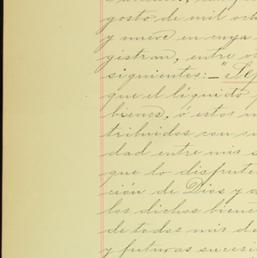 gosto de mil och
y nueve en cuya
gistran, entre o
siguientes:- "Se
que el líquido
bienes, ó estos u
tribuidos con su
dad entre mis s
que lo disfrute
ción de Dios y d
los dichos biene
de todos mis d
y futuras sucesi